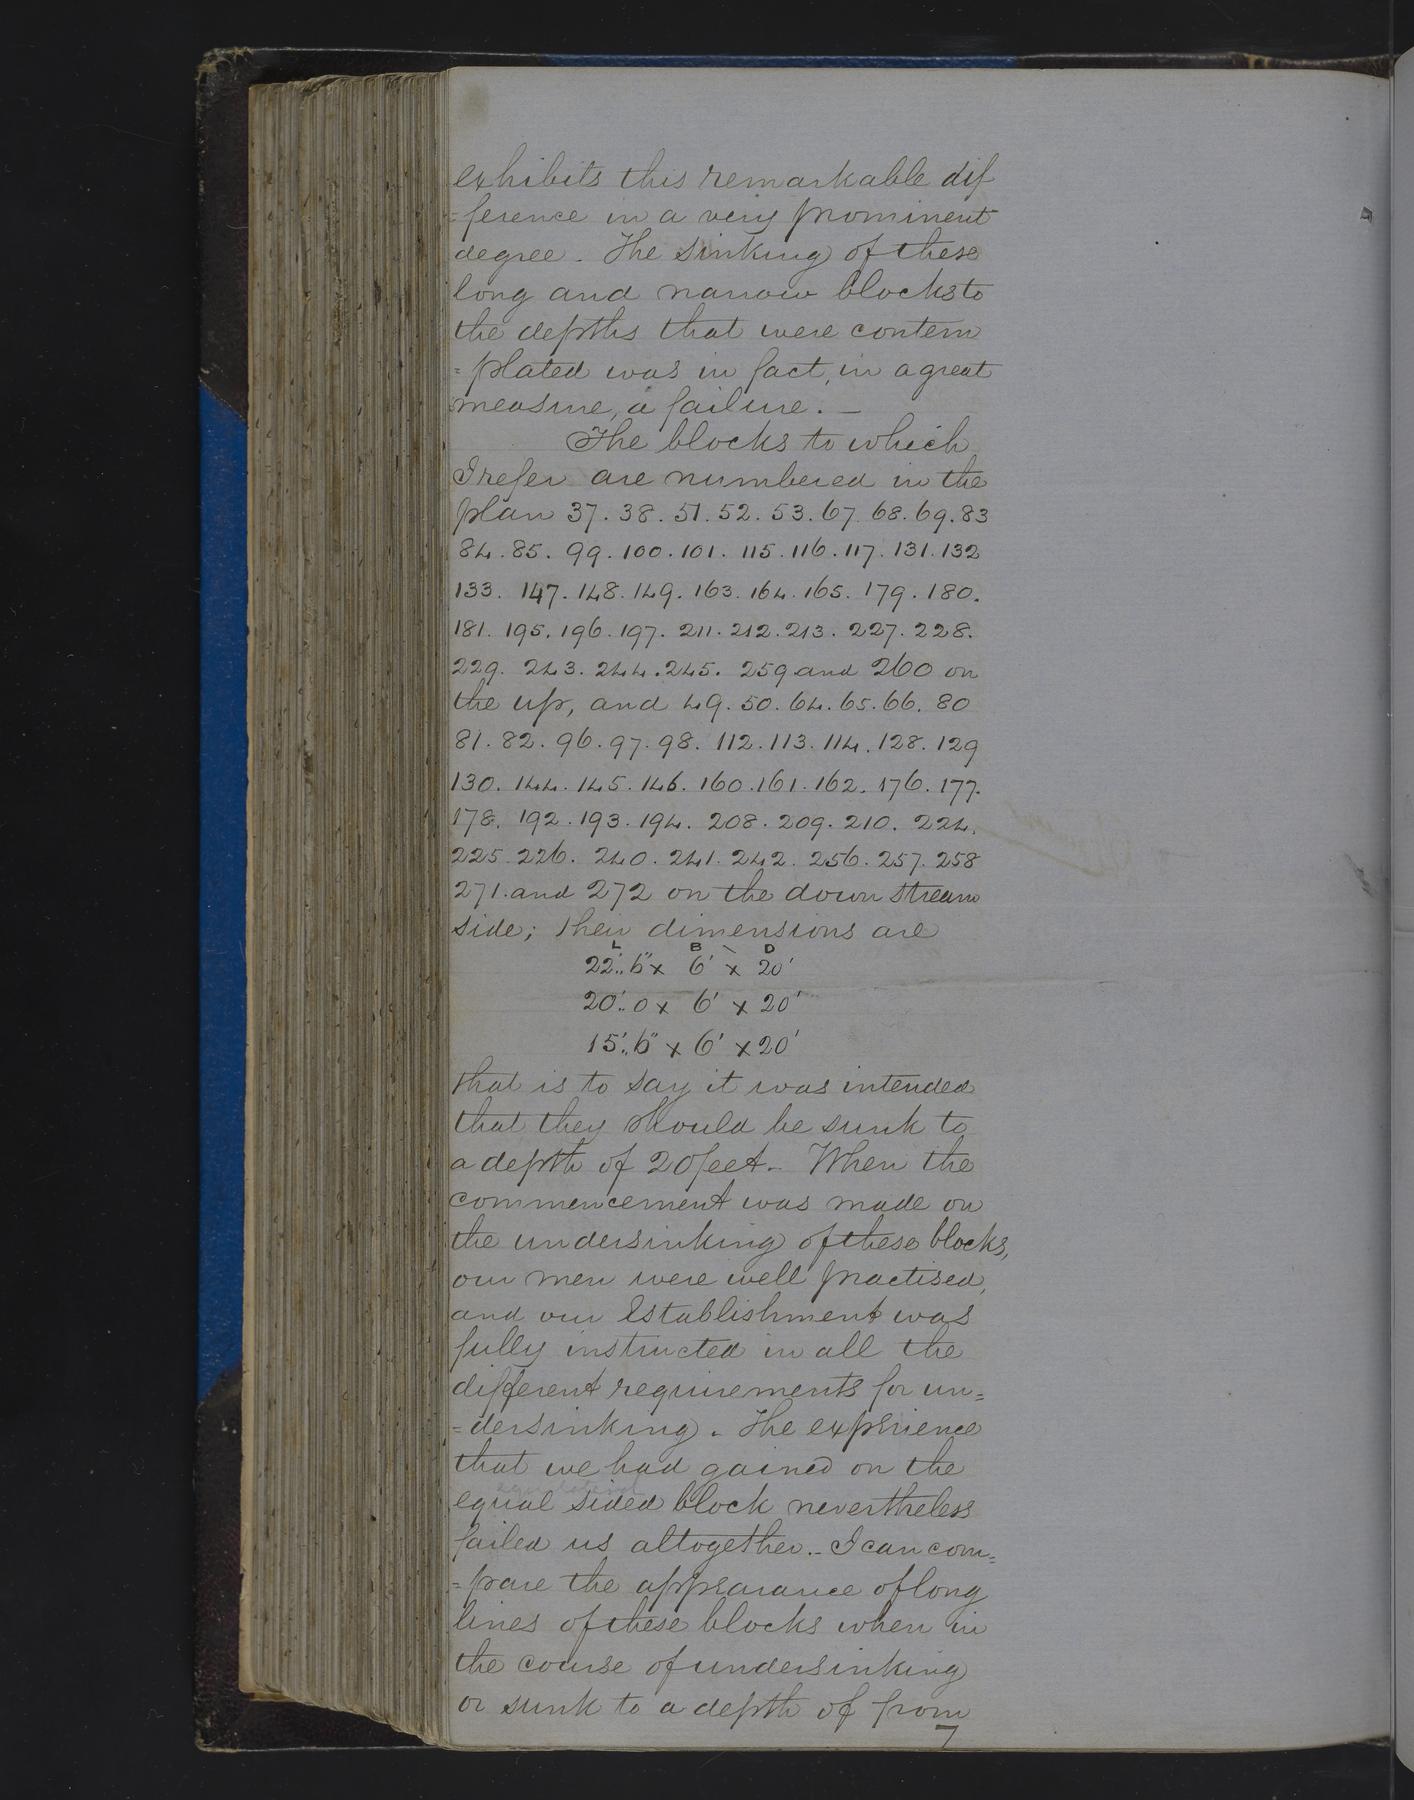 exhibits this remarkable dif
=ference in a very prominent
degree. The sinking of these
long and narrow blocks to
the depths that were contem
=plated was in fact, in a great
measure, a failure. —
The blocks to which
I refer are numbered in the
plan 37. 38. 51. 52. 53. 67. 68. 69. 83
84. 85. 99. 100. 101. 115. 116. 117. 131. 132
133. 147. 148. 149. 163. 164. 165. 179. 180.
181. 195. 196. 197. 211. 212. 213. 227. 228.
229. 243. 244. 245. 259 and 260 on
the up, and 49. 50. 64. 65. 66. 80
81. 82. 96. 97. 98. 112. 113. 114. 128. 129
130. 144. 145. 146. 160. 161. 162. 176. 177.
178. 192. 193. 194. 208. 209. 210. 224.
225. 226. 240. 241. 242. 256. 257. 258
271. and 272 on the down stream
side; their dimensions are
L B D
22'.. 6" x 6' x 20'
20'.. 0 x 6' x 20'
15'.. 6" x 6' x 20'
that is to say it was intended
that they should be sunk to
a depth of 20 feet. – When the
commencement was made on
the undersinking of these blocks,
our men were well practised,
and our Establishment was
fully instructed in all the
different requirements for un=
=dersinking. The experience
that we had gained on the
equal sided block nevertheless
failed us altogether. – I can com=
=pare the appearance of long
lines of these blocks when in
the course of undersinking
or sunk to a depth of from
7